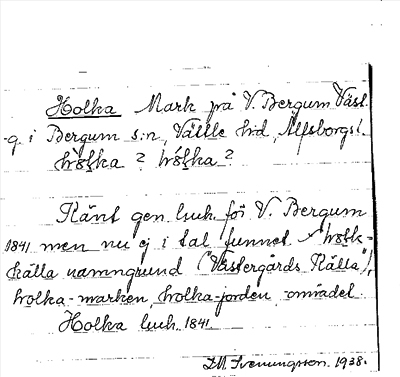 Holka Mark på V. Bergum Väst.
g. i Bergum s:n, Vättle hd, Älfsborgs l.
? ?
Känt gen. luck. för V. Bergum
1841 men nu ej i tal funnet
källa namngrund ("Västergårds Källa"),
holka-marken, holka-jorden, området
Holka luck. 1841.
Svenungsson. 1938.